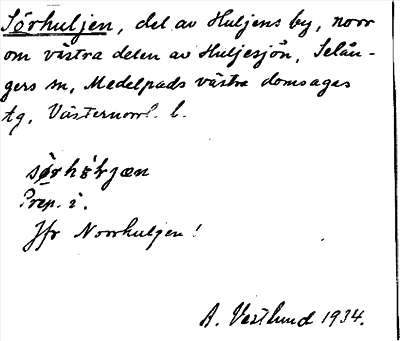 Sörhuljen, del av Huljens by, norr
om västra delen av Huljesjön, Selån-
gers sn, Medelpads västra domsagas
tg, Västernorrl. l.
Prep. i.
Jfr Norrhuljen!
A. Vestlund 1934.